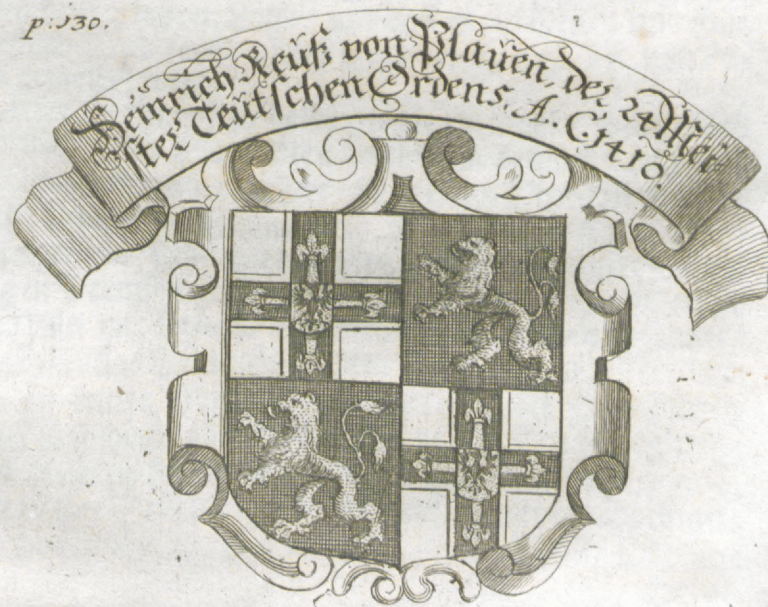 p: 130.
Heinrich Reüß von Plaüen, der 24 Mei-
ster Teütschen Ordens. A. C. 1410.